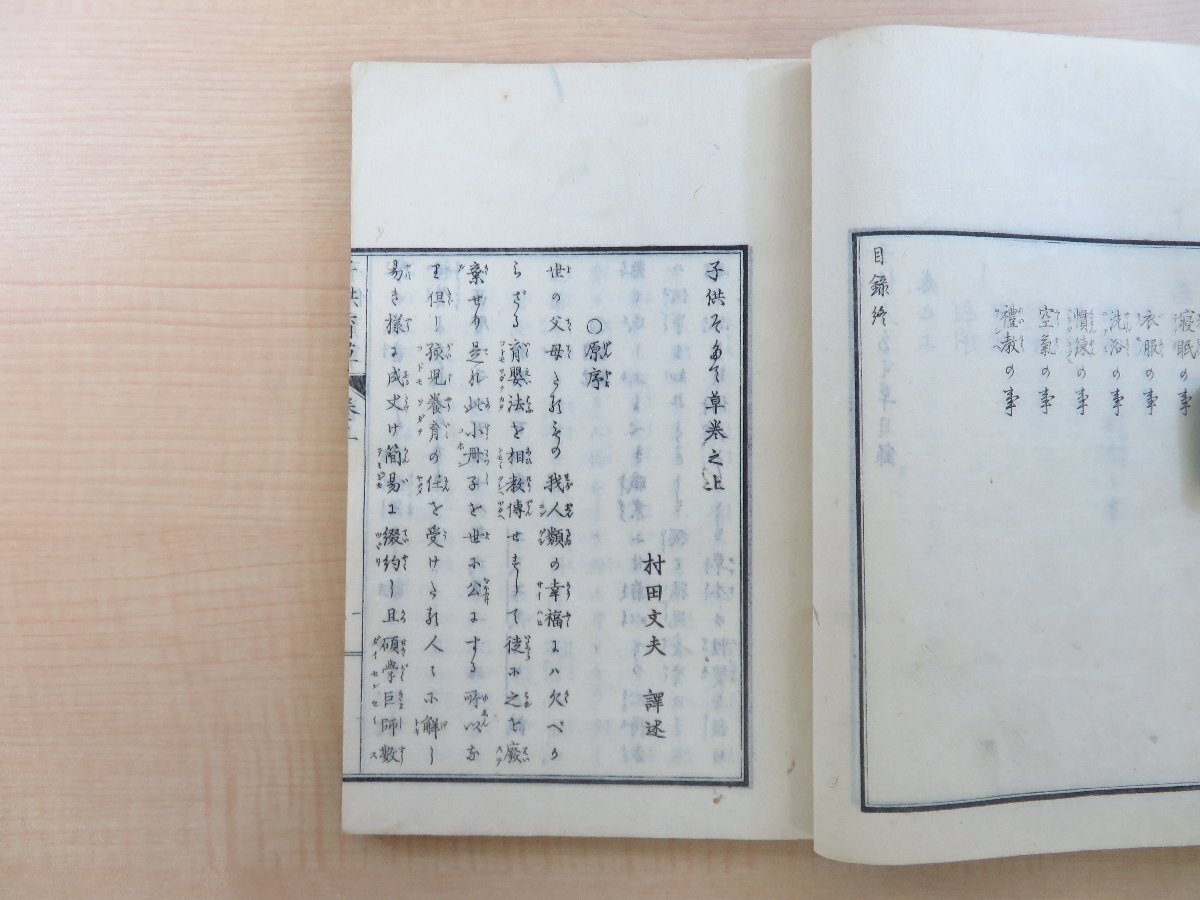 寝眠の事
衣服の事
洗浴の事
慣錬の事
空氣の事
禮教の事
目録終
子供そだて草巻之上
村田文夫 譯述
○原序
世の父母たるものの我人類の幸福にハ欠べか
らざる育嬰法を相教傳せずして徒に之を廢
棄せり是れ此小冊子を世に公にする所以な
り但し孩児養育の任を受けたる人々に解し
易き様に成丈け簡易に綴約し且碩學巨師數
子供育草 巻之上